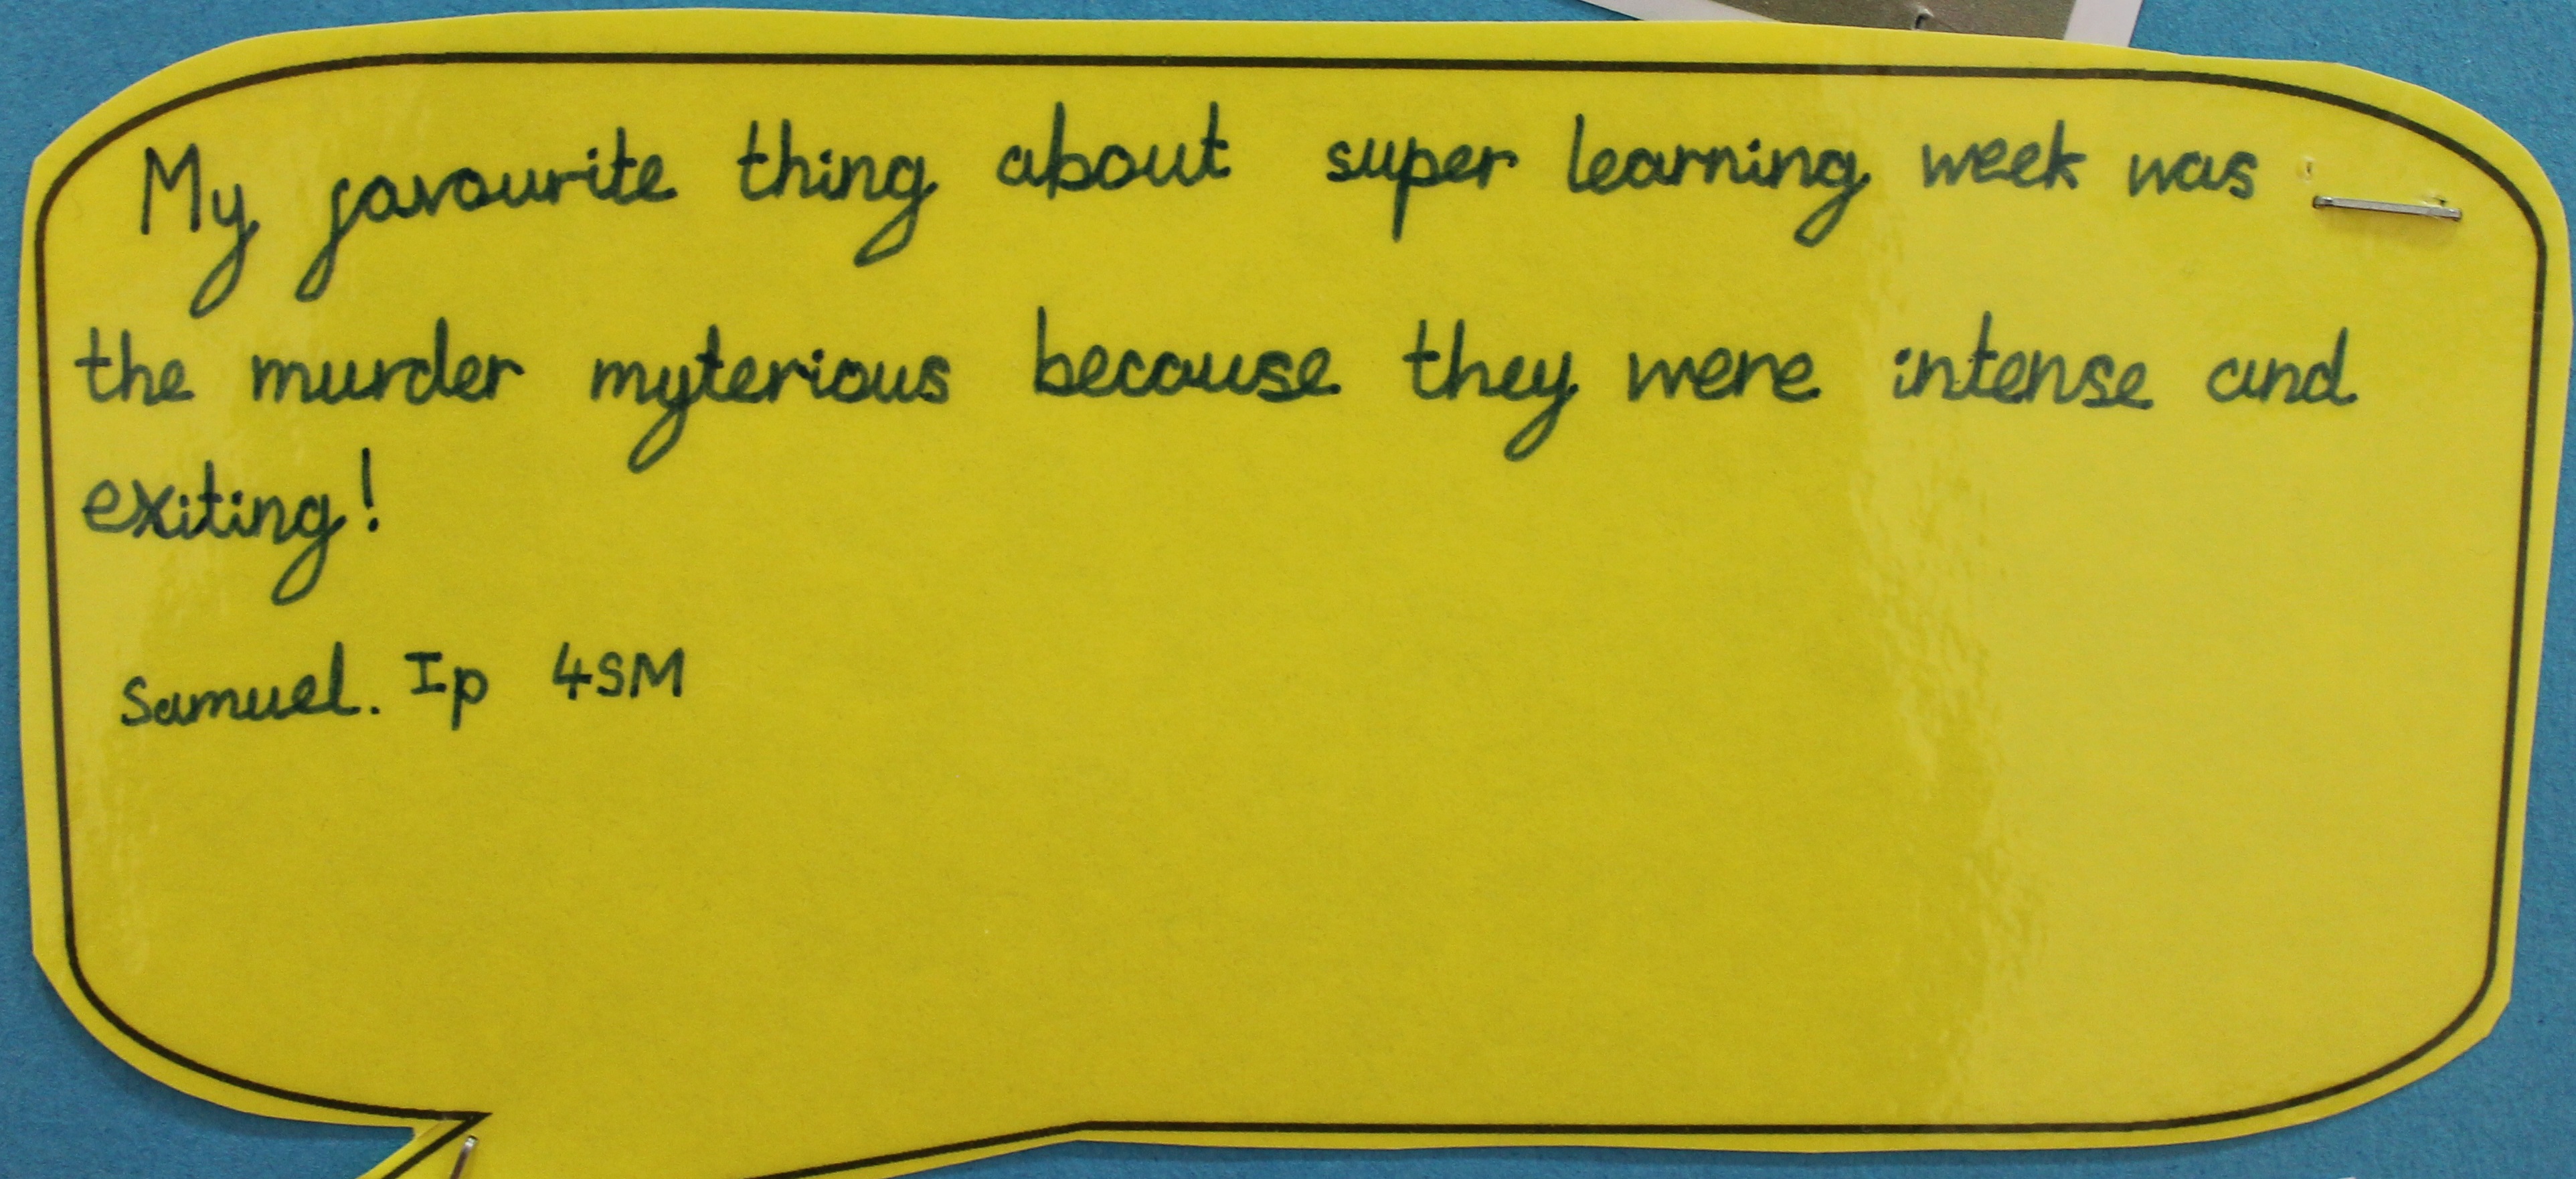 My favourite thing about super learning week was
the murder myterious because they were intense and
exiting!
Samuel. Ip 4SM